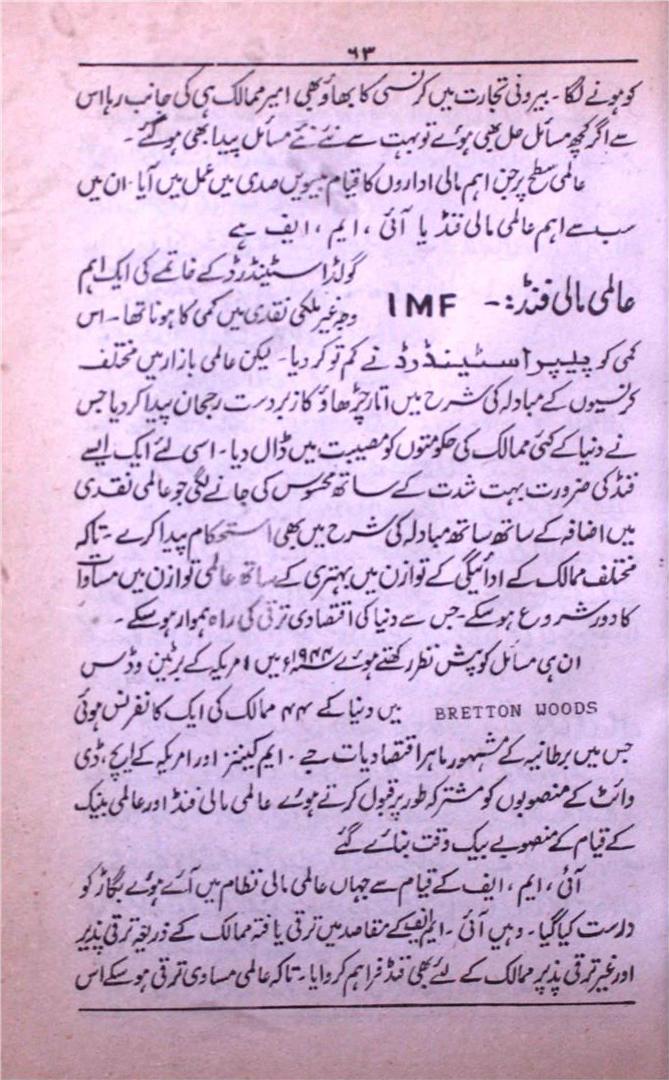 ۶۳
کو ہونے لگا۔ بیرونی تجارت میں کرنسی کا بھاؤ بھی امیر ممالک ہی کی جانب رہا اس
سے اگر کچھ مسائل حل بھی ہوئے تو بہت سے نئے نئے مسائل پیدا بھی ہو گئے۔
عالمی سطح پر جن اہم مالی اداروں کا قیام بیسویں صدی میں عمل میں آیا۔ ان میں
سب سے اہم عالمی مالی فنڈ یا آئی، ایم، ایف ہے
عالمی مالی فنڈ:۔ IMF گولڈ اسٹینڈرڈ کے خاتمے کی ایک اہم
وجہ غیر ملکی نقدی میں کمی کا ہونا تھا۔ اس
کمی کو پیپر اسٹینڈرڈ نے کم تو کر دیا۔ لیکن عالمی بازار میں مختلف
کرنسیوں کے مبادلہ کی شرح میں اتار چڑھاؤ کا زبردست رجحان پیدا کر دیا جس
نے دنیا کے کئی ممالک کی حکومتوں کو مصیبت میں ڈال دیا۔ اسی لئے ایک ایسے
فنڈ کی ضرورت بہت شدت کے ساتھ محسوس کی جانے لگی جو عالمی نقدی
میں اضافہ کے ساتھ ساتھ مبادلہ کی شرح میں بھی استحکام پیدا کرے۔ تاکہ
مختلف ممالک کے ادائیگی کے توازن میں بہتری کے ساتھ عالمی توازن میں مساوات
کا دور شروع ہو سکے۔ جس سے دنیا کی اقتصادی ترقی کی راہ ہموار ہو سکے۔
ان ہی مسائل کو پیش نظر رکھتے ہوئے ۱۹۴۴ء میں امریکہ کے برٹین وڈس
BRETTON WOODS میں دنیا کے ۴۴ ممالک کی ایک کانفرنس ہوئی
جس میں برطانیہ کے مشہور ماہر اقتصادیات جے۔ ایم کینز اور امریکہ کے ایچ، ڈی
وائٹ کے منصوبوں کو مشترکہ طور پر قبول کرتے ہوئے عالمی مالی فنڈ اور عالمی بینک
کے قیام کے منصوبے بیک وقت بنائے گئے
آئی، ایم، ایف کے قیام سے جہاں عالمی مالی نظام میں آئے ہوئے بگاڑ کو
درست کیا گیا۔ وہیں آئی۔ ایم ایف کے مقاصد میں ترقی یافتہ ممالک کے ذریعہ ترقی پذیر
اور غیر ترقی پذیر ممالک کے لئے بھی فنڈ فراہم کروایا۔ تاکہ عالمی مساوی ترقی ہو سکے اس